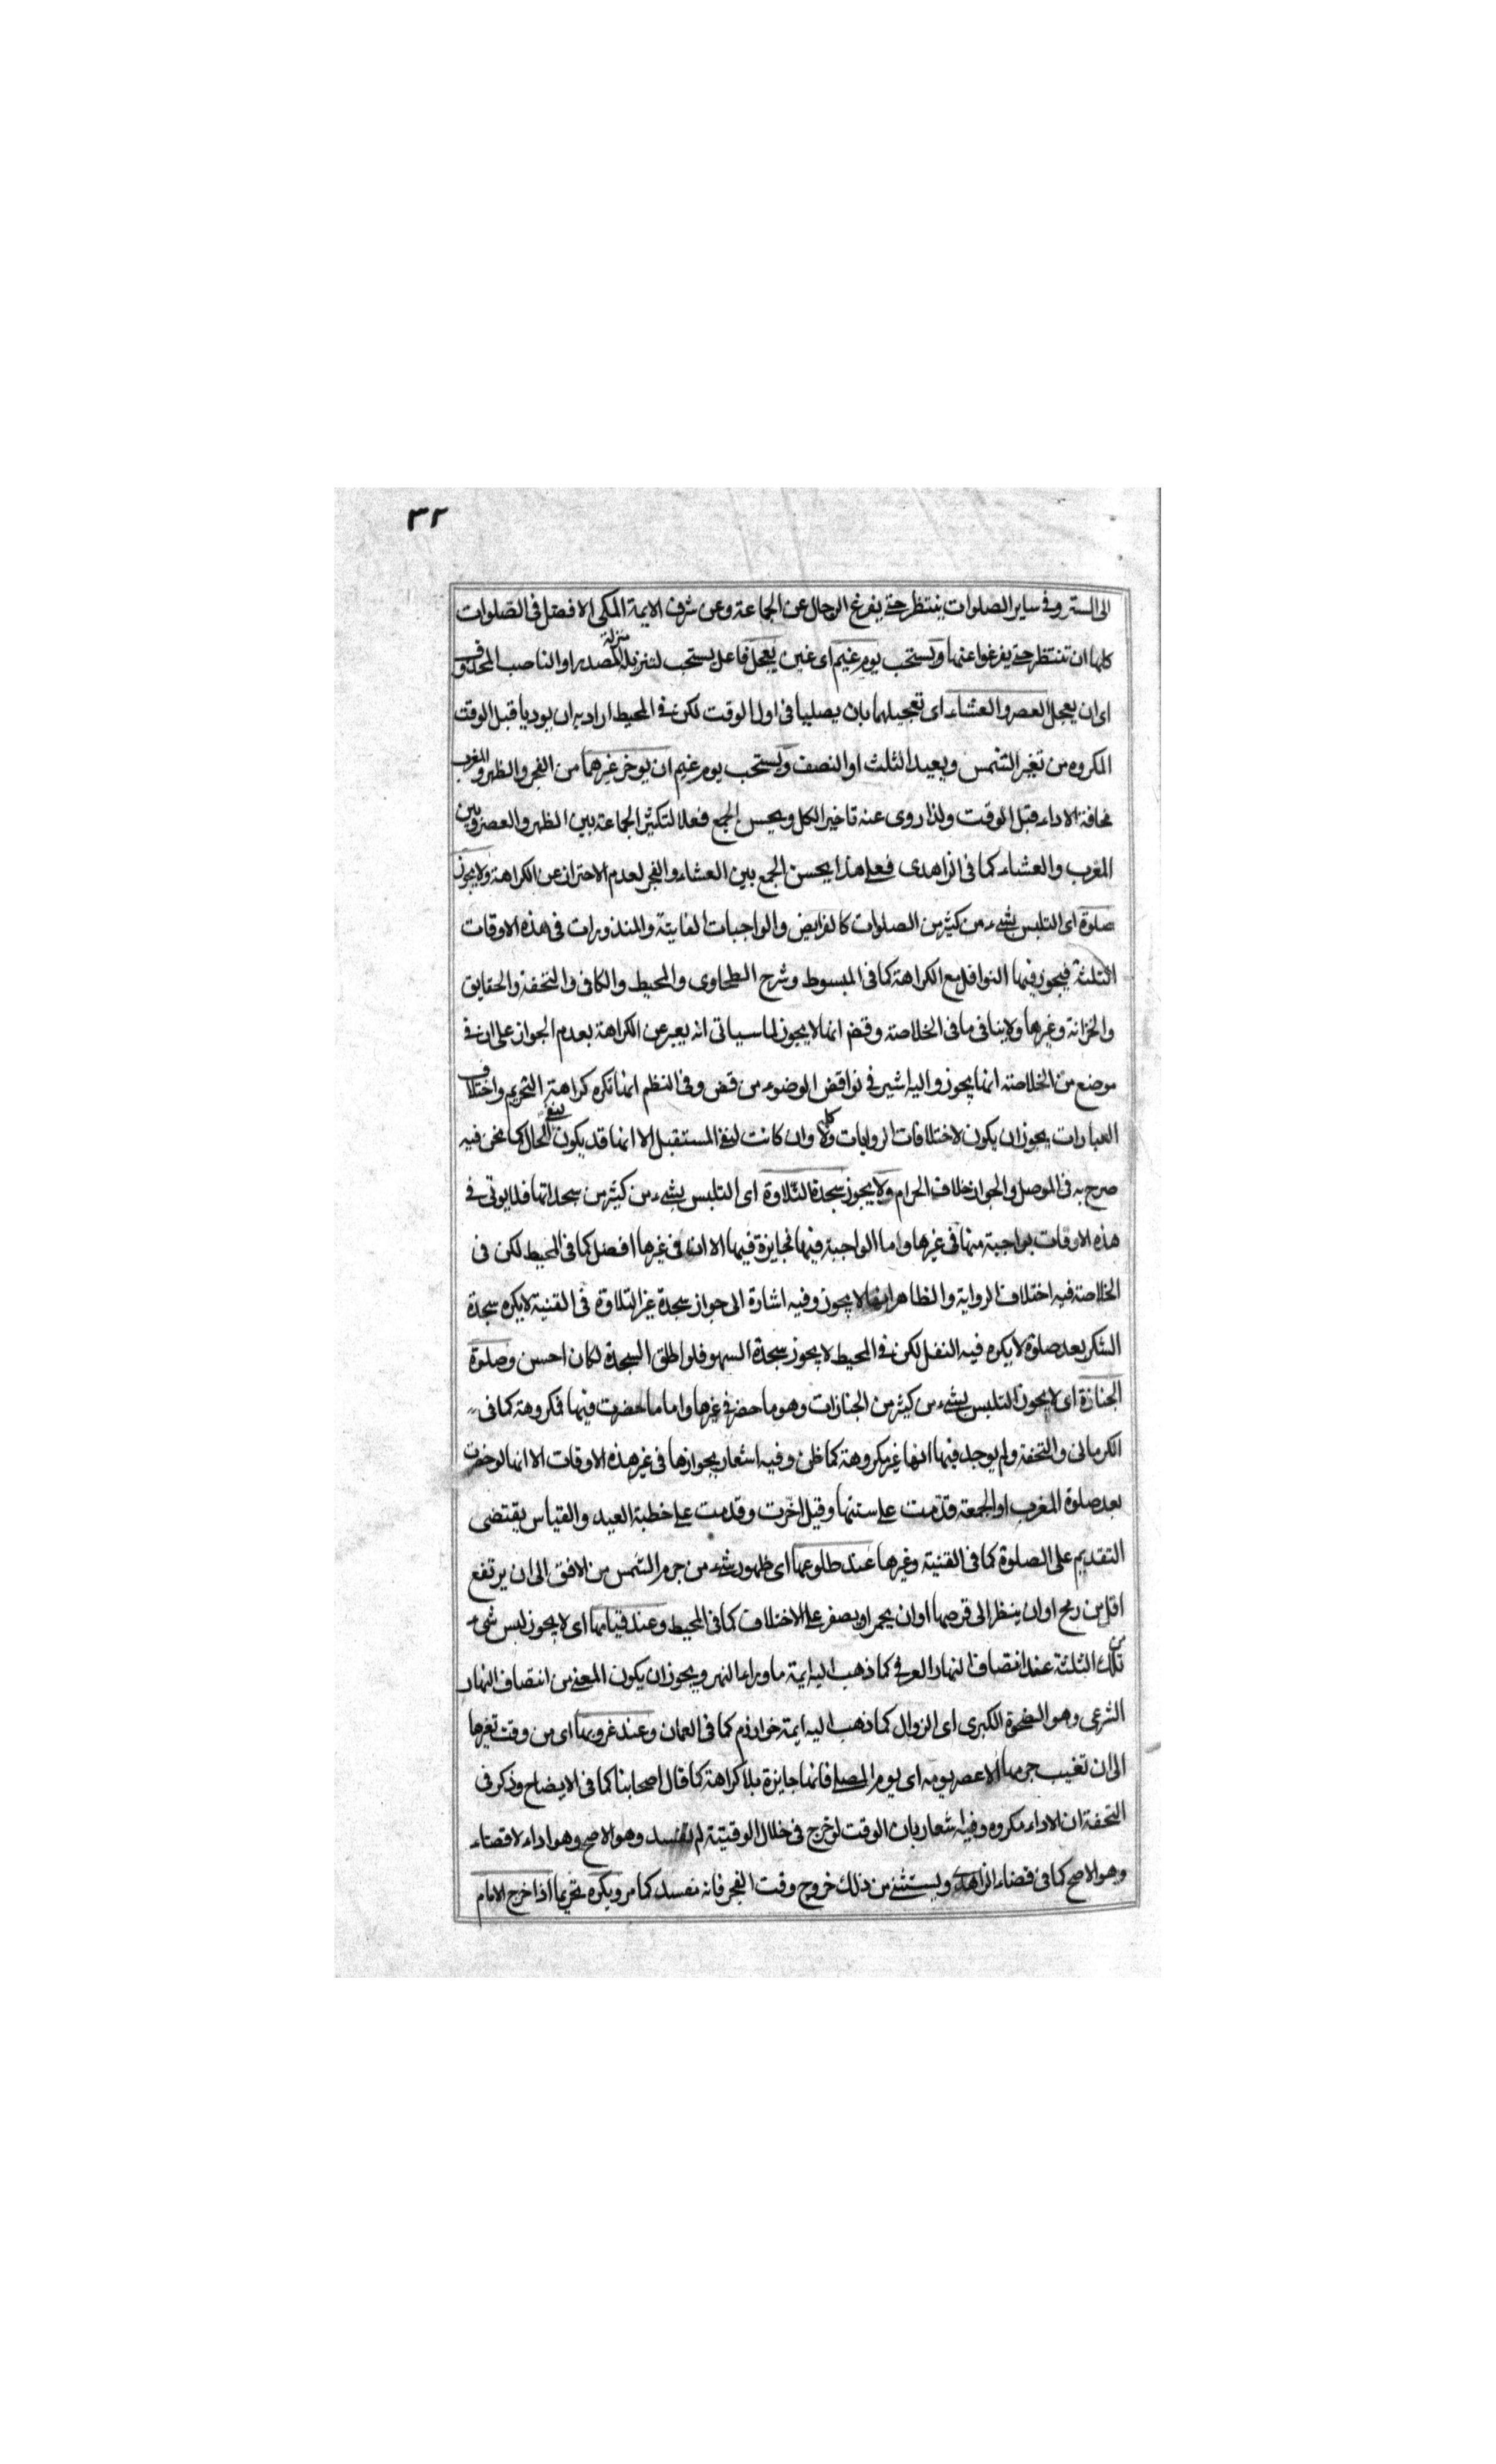 ٣٢
الى الستر وفى ساير الصلوات ينتظر حتى يفرغ الرجال عن الجماعة وعن شرف الايمة المكى الافضل فى الصلوات
كلها ان تنتظر حتى يفرغوا عنها ويستحب يوم غيم اى غين يعجل فاعل يستحب لتنزيله منزلة المصدر او الناصب المحذوف
اى ان يعجل العصر والعشاء اى تعجيلهما بان يصليا فى اول الوقت لكن فى المحيط اراد به ان يوديا قبل الوقت
المكروه من تغير الشمس وبعيد الثلث او النصف ويستحب يوم غيم ان يوخر غيرهما من الفجر والظهر والمغرب
مخافة الاداء قبل الوقت ولذا روى عنه تاخير الكل ويحسن الجمع فعلا لتكثير الجماعة بين الظهر والعصر وبين
المغرب والعشاء كما فى الزاهدى فعلى هذا يحسن الجمع بين العشاء والفجر لعدم الاحتراز عن الكراهة ولا يجوز
صلوة اى التلبس بشىء من كثير من الصلوات كالفرايض والواجبات الفايتة والمنذورات فى هذه الاوقات
الثلثة فيجوز فيها النوافل مع الكراهة كما فى المبسوط وشرح الطحاوى والمحيط والكافى والتحفة والحقايق
والخزانة وغيرها ولا ينافى ما فى الخلاصة وقض انها لا يجوز لما سياتى انه يعبر عن الكراهة بعدم الجواز على ان فى
موضع من الخلاصة انها يجوز واليه اشير فى نواقض الوضوء من قض وفى النظم انها تكره كراهة التحريم واختلاف
العبارات يجوز ان يكون لاختلافات الروايات وكلمة لا وان كانت لنفى المستقبل الا انها قد يكون لنفى الحال كما نحن فيه
صرح به فى الموصل والجواز خلاف الحرام ولا يجوز سجدة التلاوة اى التلبس بشىء من كثير من سجداتها فلا يوتى فى
هذه الاوقات بواجبة منها فى غيرها واما الواجبة فيها فجايزة فيها الا ان فى غيرها افضل كما فى المحيط لكن فى
الخلاصة فيه اختلاف الرواية والظاهر انها لا يجوز وفيه اشارة الى جواز سجدة غير التلاوة فى القنية لا يكره سجدة
الشكر بعد صلوة لا يكره فيه النفل لكن فى المحيط لا يجوز سجدة السهو فلو اطلق السجدة لكان احسن وصلوة
الجنازة اى لا يجوز التلبس بشىء من كثير من الجنازات وهو ما حضر فى غيرها واما ما حضرت فيها فمكروهة كما فى
الكرمانى والتحفة ولم يوجد فيها انها غير مكروهة كما ظن وفيه اشعار بجوازها فى غير هذه الاوقات الا انها لو حضرت
بعد صلوة المغرب او الجمعة قدمت على سنتها وقيل اخرت وقدمت على خطبة العيد والقياس يقتضى
التقديم على الصلوة كما فى القنية وغيرها عند طلوعها اى ظهور شىء من جرم الشمس من الافق الى ان يرتفع
اقل من رمح او ان ينظر الى قرصها او ان يحمر او يصفر على الاختلاف كما فى المحيط وعند قيامها اى لا يجوز لبس شىء
من تلك الثلثة عند انتصاف النهار العرفى كما ذهب اليه ايمة ماوراء النهر ويجوز ان يكون المعنى من انتصاف النهار
الشرعى وهو الضحوة الكبرى اى الزوال كما ذهب اليه ايمة خوارزم كما فى العمان وعند غروبها اى من وقت تغيرها
الى ان تغيب جرمها الا عصر يومه اى يوم المصلى فانها جايزة بلا كراهة كما قال اصحابنا كما فى الايضاح وذكر فى
التحفة ان الاداء مكروه وفيه اشعار بان الوقت لو خرج فى خلال الوقتية لم تفسد وهو الاصح وهو اداء لا قضاء
وهو الاصح كما فى قضاء الزاهدى ويستثنى من ذلك خروج وقت الفجر فانه مفسد كما مر ويكره تحريما اذا خرج الامام